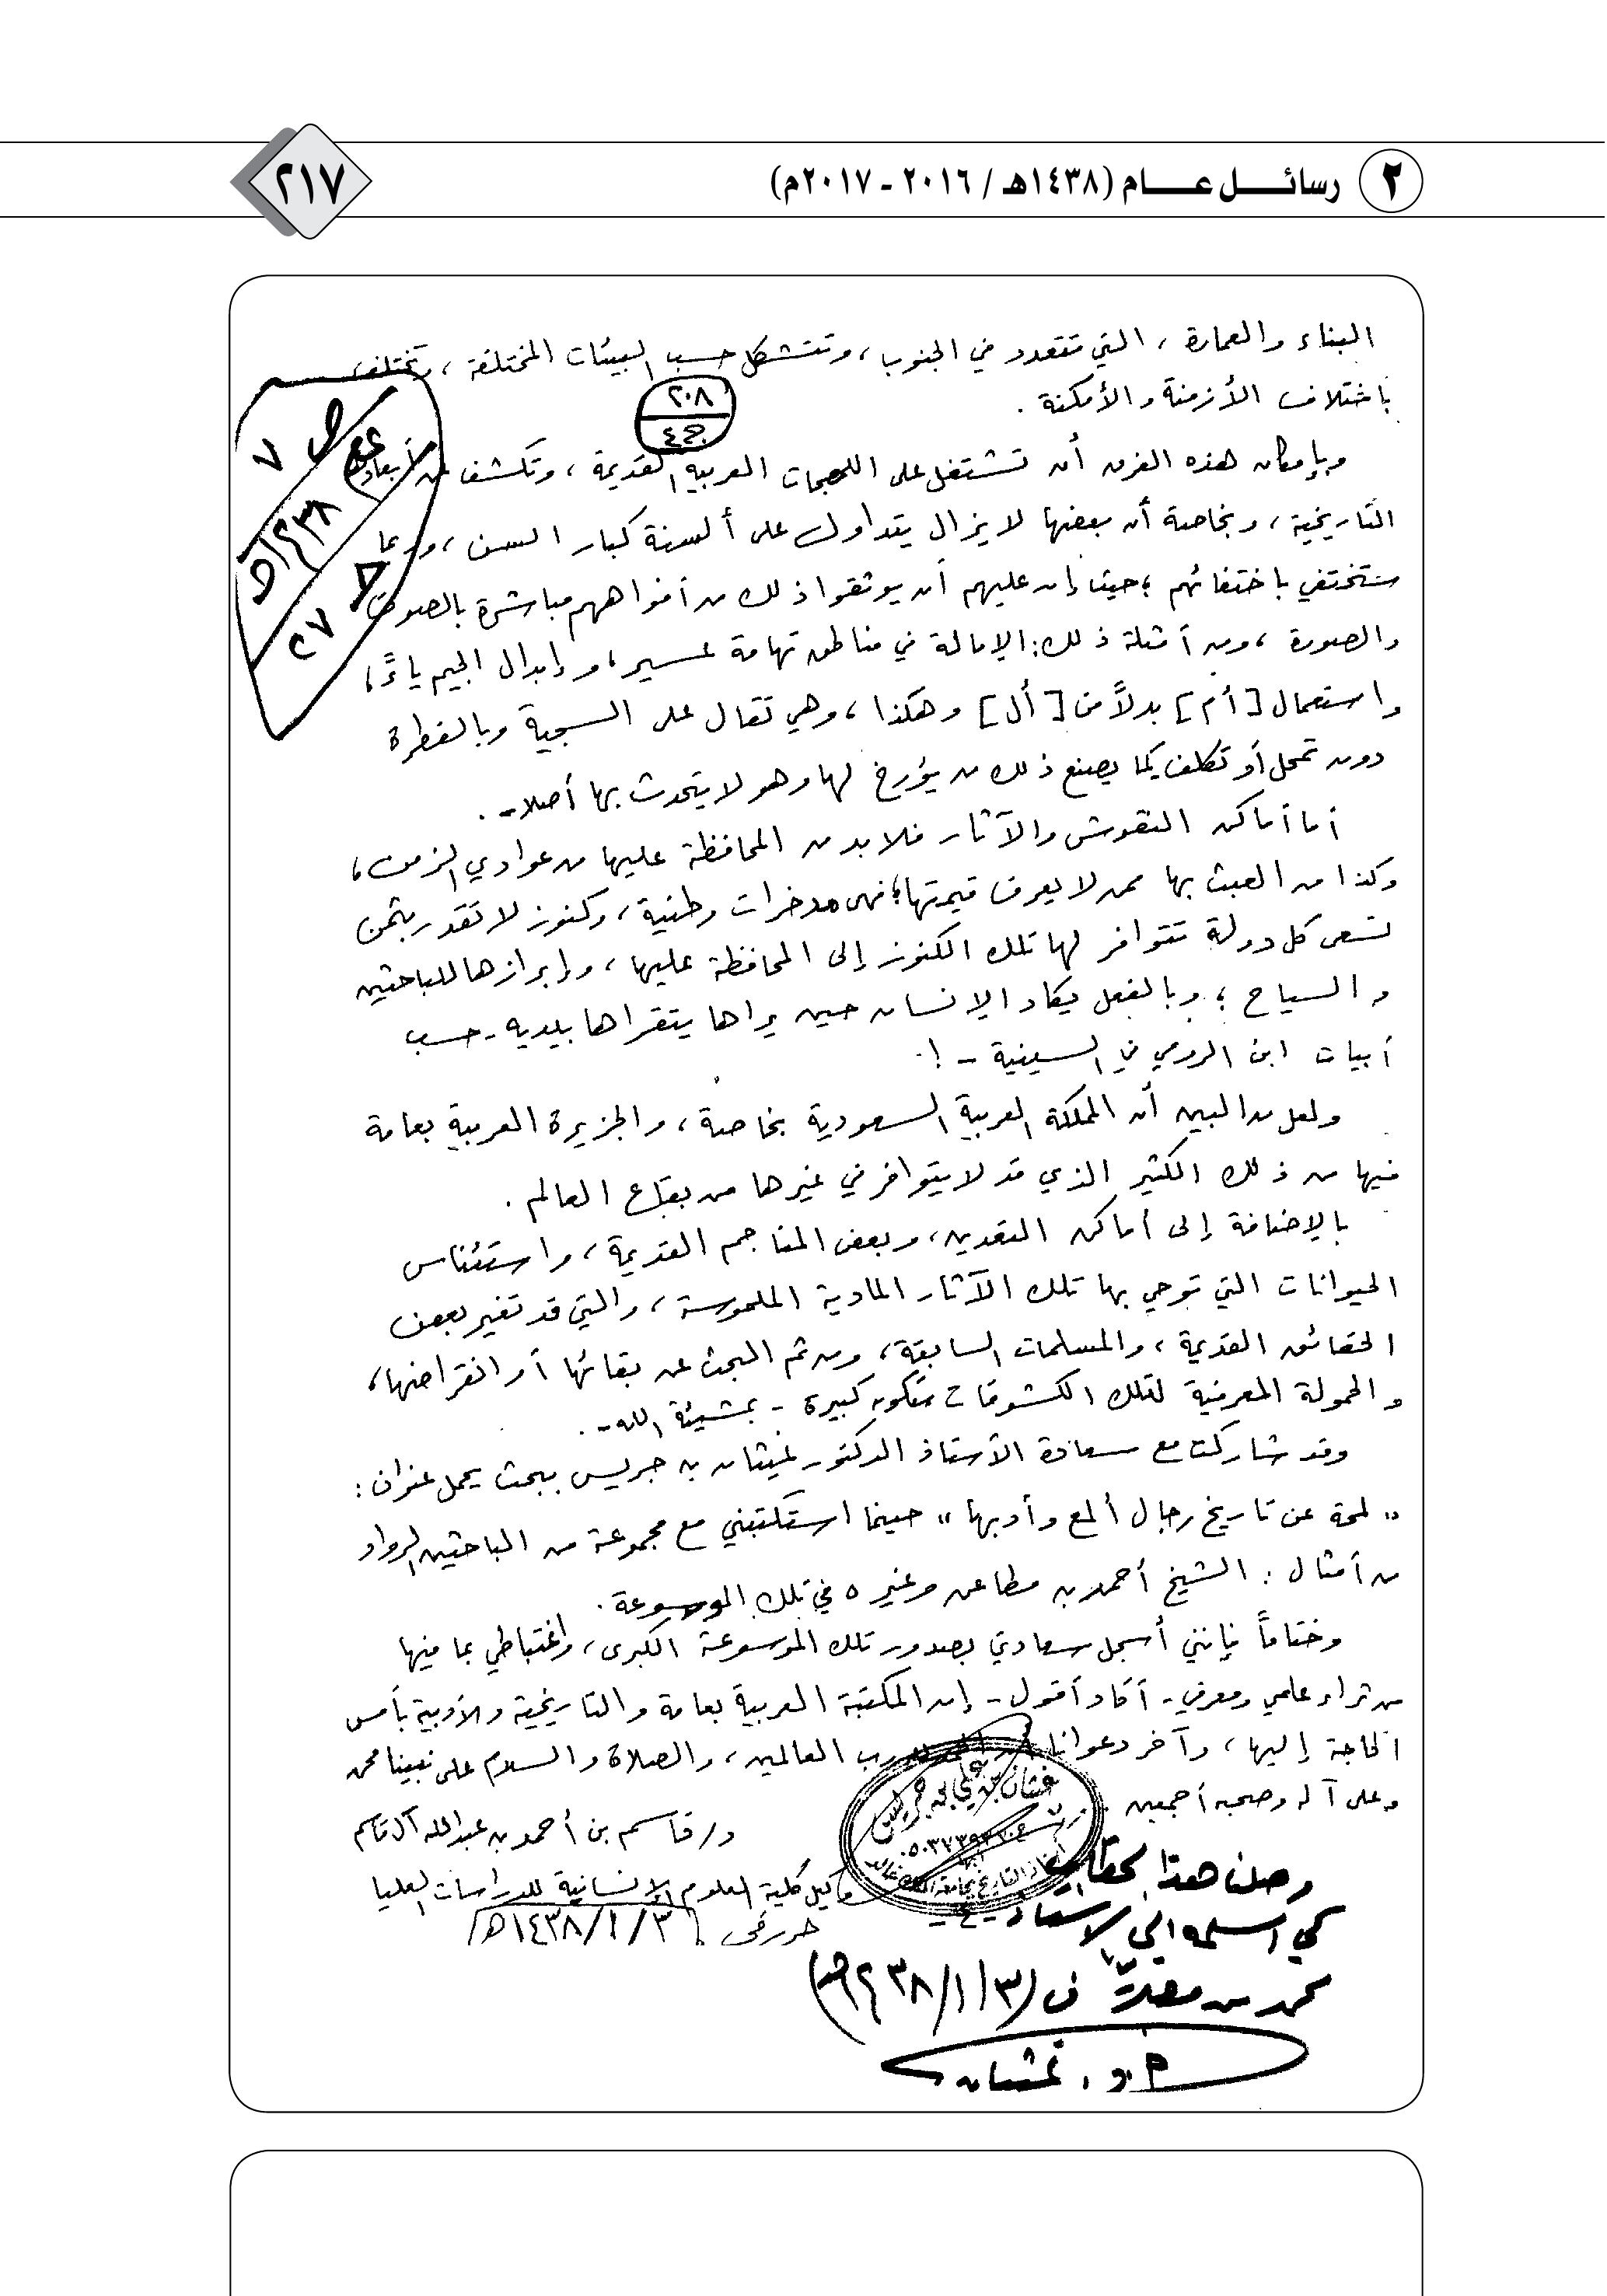 ٢ رسائـــل عـــام (١٤٣٨هـ / ٢٠١٦ - ٢٠١٧م)
٢١٧
البناء والعمارة ، التي تتعدد في الجنوب ، وتتشكل حسب البيئات المختلفة ، وتختلف
باختلاف الأزمنة والأمكنة .
٢٠٨
ج٤
وبإمكان هذه الفرق أن تشتغل على اللهجات العربية القديمة ، وتكشف عن أبعادها
التاريخية ، وبخاصة أن بعضها لا يزال يتداول على ألسنة كبار السن ، وربما
ستختفي باختفائهم ؛ حيث إن عليهم أن يوثقوا ذلك من أفواههم مباشرة بالصوت
والصورة ، ومن أمثلة ذلك : الإمالة في مناطق تهامة عسير ، وإبدال الجيم ياءً ،
واستعمال [أم] بدلاً من [أل] وهكذا ، وهي تقال على السجية وبالفطرة
دون تمحل أو تكلف كما يصنع ذلك من يؤرخ لها وهو لا يتحدث بها أصلا - .
أما أماكن النقوش والآثار فلا بد من المحافظة عليها من عوادي الزمن ،
وكذا من العبث بها ممن لا يعرف قيمتها ؛ فهي مدخرات وطنية ، وكنوز لا تقدر بثمن
تسعى كل دولة تتوافر لها تلك الكنوز إلى المحافظة عليها ، وإبرازها للباحثين
والسياح ؛ وبالفعل يكاد الإنسان حين يراها يتقراها بيديه - حسب
أبيات ابن الرومي في السينية - !
ولعل من البين أن المملكة العربية السعودية بخاصة ، والجزيرة العربية بعامة
فيها من ذلك الكثير الذي قد لا يتوافر في غيرها من بقاع العالم .
بالإضافة إلى أماكن التعدين ، وبعض المناجم القديمة ، واستئناس
الحيوانات التي توحي بها تلك الآثار المادية الملموسة ، والتي قد تغير بعض
الحقائق القديمة ، والمسلمات السابقة ، ومن ثم البحث عن بقائها أو انقراضها ،
والحمولة المعرفية لتلك الكشوفات ستكون كبيرة - بمشيئة الله - .
وقد شاركت مع سعادة الأستاذ الدكتور غيثان بن جريس ببحث يحمل عنوان :
" لمحة عن تاريخ رجال ألمع وأدبها " حينما استكتبني مع مجموعة من الباحثين الرواد
من أمثال : الشيخ أحمد بن مطاعن وغيره في تلك الموسوعة .
وختاماً فإنني أسجل سعادتي بصدور تلك الموسوعة الكبرى ، واغتباطي بما فيها
من ثراء علمي ومعرفي - أكاد أقول - إن المكتبة العربية بعامة والتاريخية والأدبية بأمس
الحاجة إليها ، وآخر دعوانا أن الحمد لله رب العالمين ، والصلاة والسلام على نبينا محمد
وعلى آله وصحبه أجمعين
د/ قاسم بن أحمد بن عبدالله آل قاسم
وكيل كلية العلوم الإنسانية للدراسات العليا
حرر في ٣/١/١٤٣٨هـ
غيثان بن علي بن جريس
وصلني هذا الخطاب
كي اسلمه إلى الأستاذ
محمد بن
في (٣/١/١٤٣٨هـ)
أ.د. غيثان